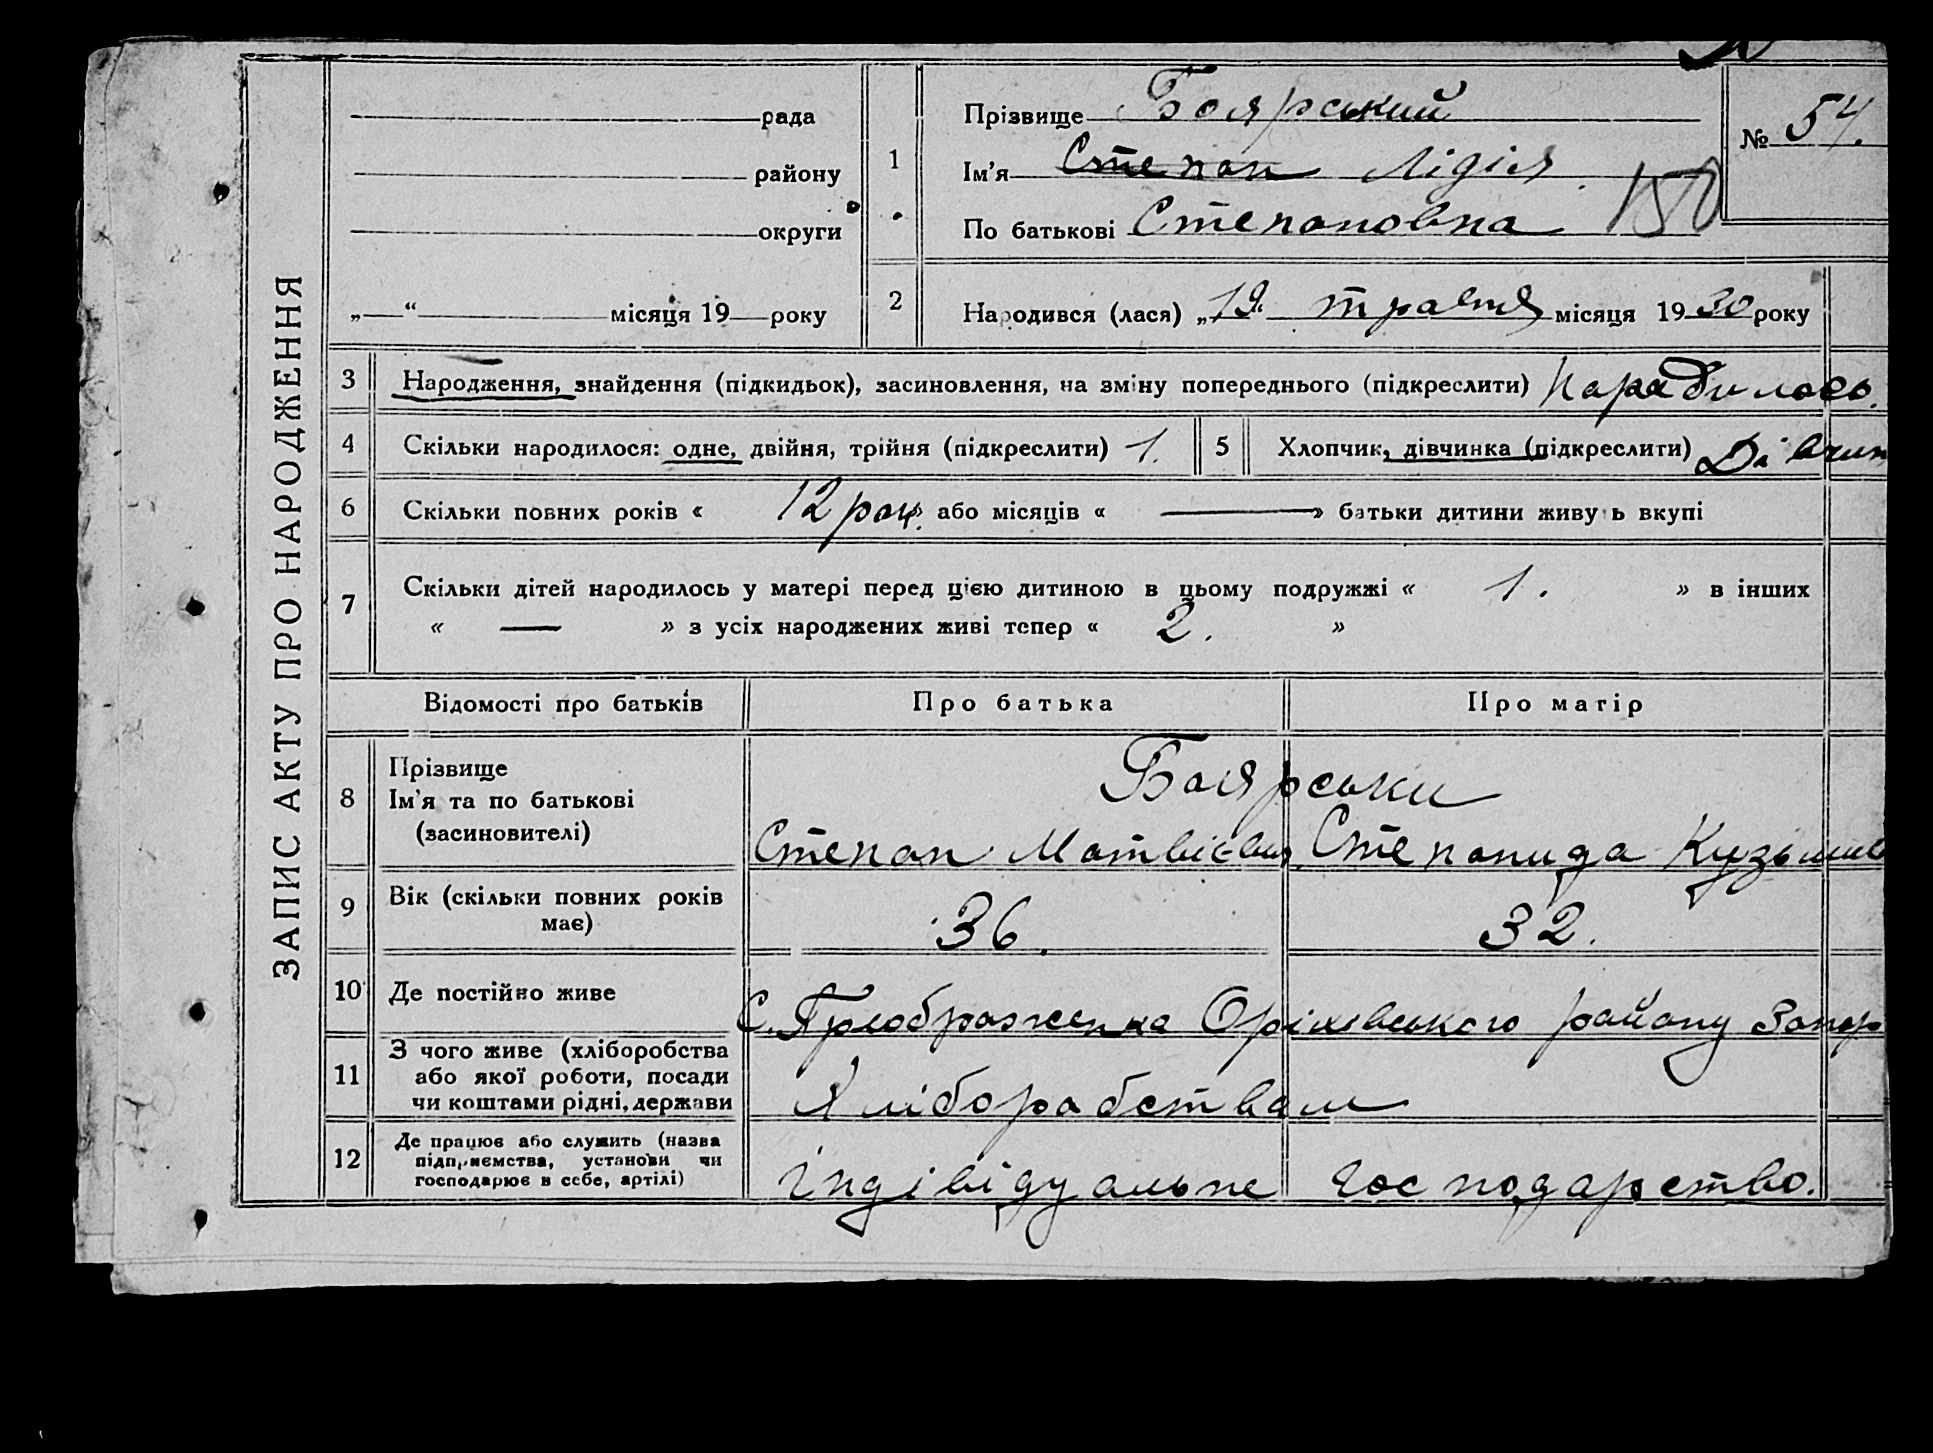 ЗАПИС АКТУ ПРО НАРОДЖЕННЯ
рада
району
округи
„ “ місяця 19 року
1
Прізвище Боярський
Ім'я Степан Лідія
По батькові Степановна
150
№ 54.
2
Народився (лася) „19“ травня місяця 1930 року
3 Народження, знайдення (підкидьок), засиновлення, на зміну попереднього (підкреслити) Народилось.
4 Скільки народилося: одне, двійня, трійня (підкреслити) 1.
5 Хлопчик, дівчинка (підкреслити) Дівчин
6 Скільки повних років « 12 роц. » або місяців « — » батьки дитини живуть вкупі
7 Скільки дітей народилось у матері перед цією дитиною в цьому подружжі « 1. » в інших
« — » з усіх народжених живі тепер « 2. »
Відомості про батьків Про батька Про матір
8 Прізвище Боярськи
Ім'я та по батькові
(засиновителі) Степан Матвієвич Степанида Кузьмив
9 Вік (скільки повних років
має) 36. 32.
10 Де постійно живе С. Преображенка Оріхівського району Запор
11 З чого живе (хліборобства
або якої роботи, посади
чи коштами рідні, держави Хліборабством
12 Де працює або служить (назва
підприємства, установи чи
господарює в себе, артілі) індівідуальне господарство.